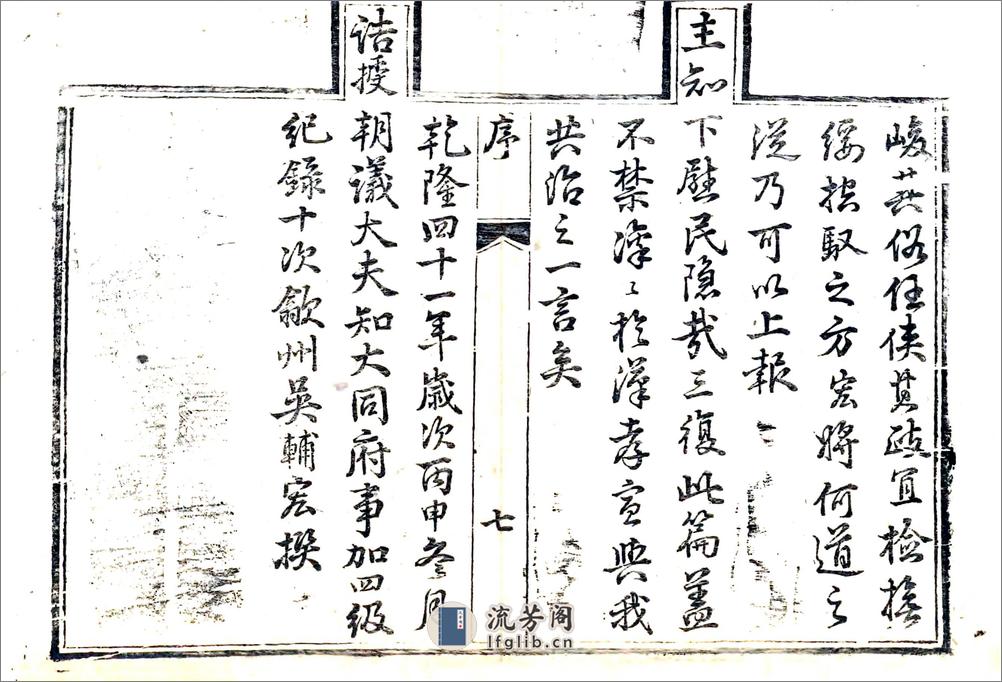 峻其俗任俠其政宜檢撫
綏控馭之方宏將何道之
從乃可以上報
主知
下慰民隱哉三復此篇蓋
不禁深〻於漢孝宣與我
共治之一言矣
序
七
乾隆四十一年歲次丙申冬月
誥授
朝議大夫知大同府事加四級
紀錄十次歙州吳輔宏撰
流芳阁
lfglib.cn